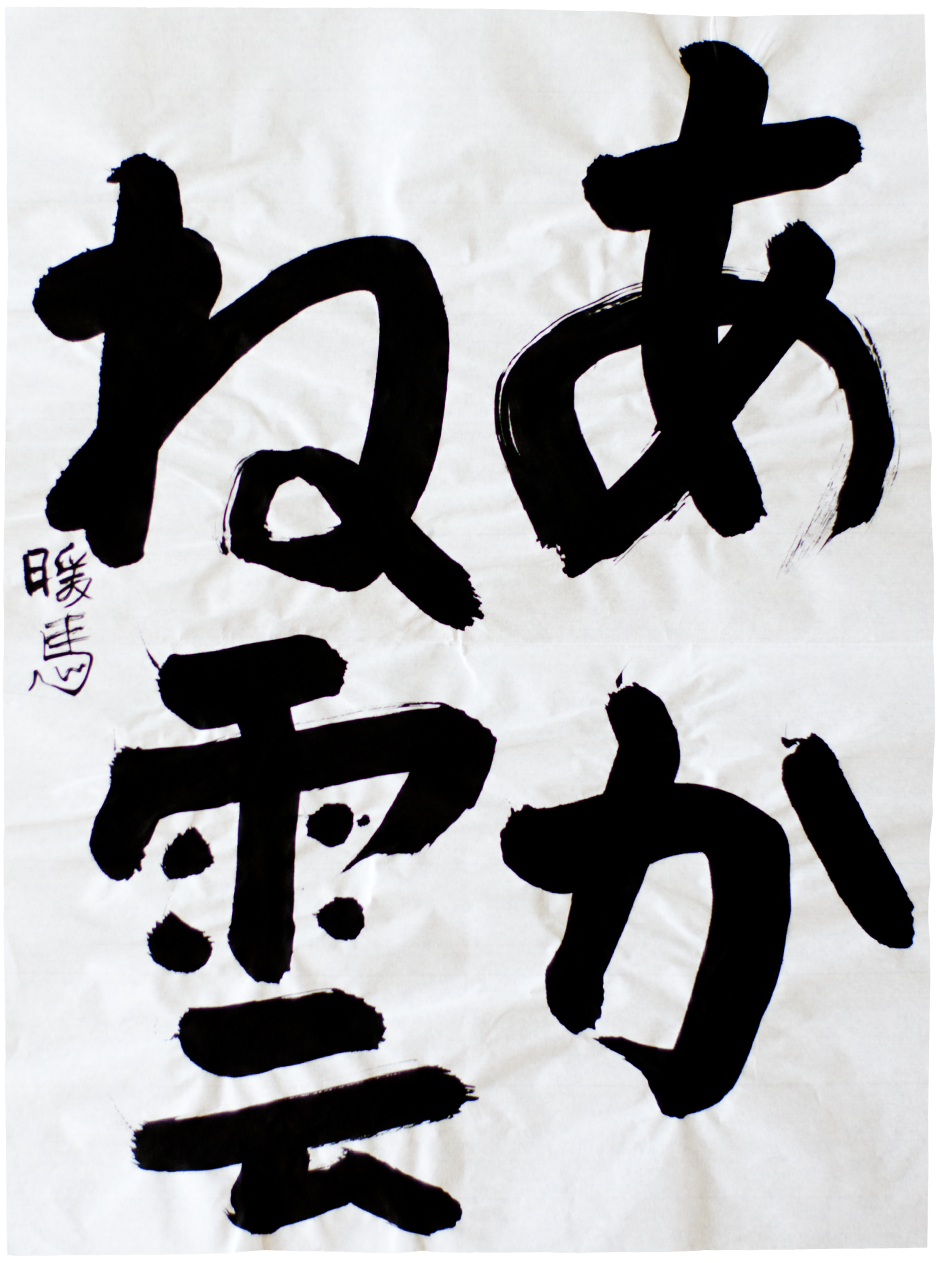 あか
ね雲
暖馬